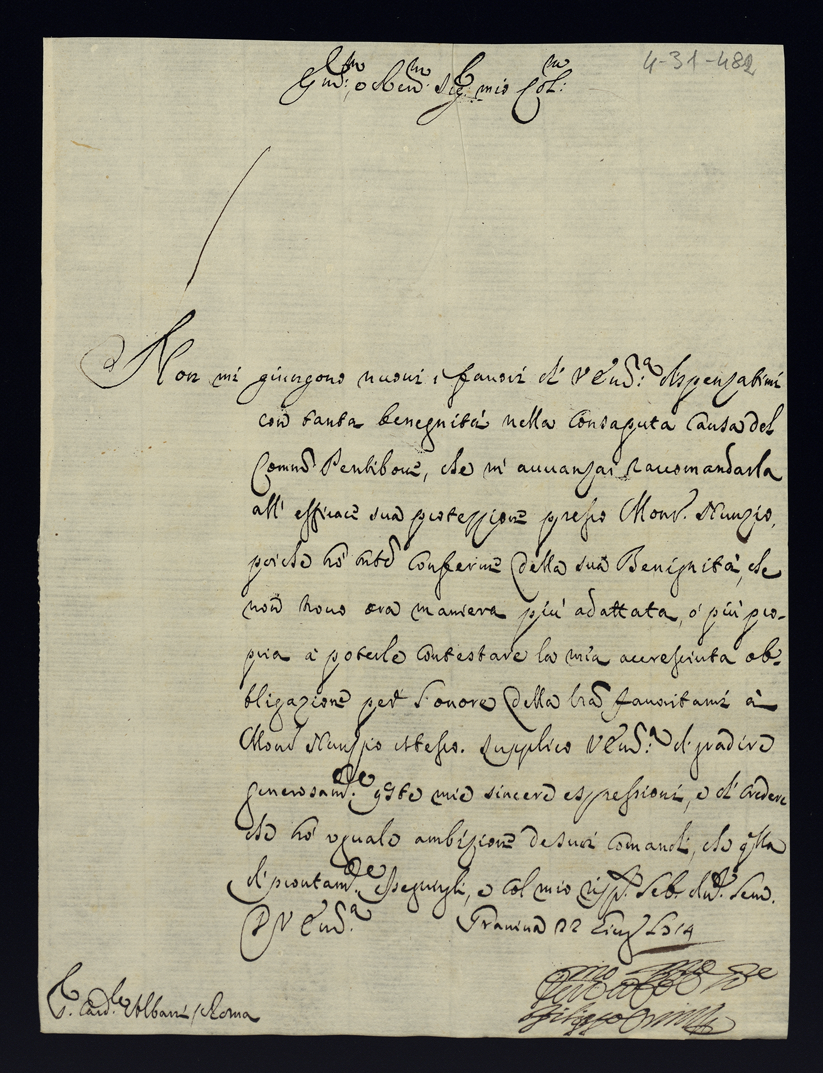 4-31-482
Em.mo e Rev.mo Sig.r mio Col.mo
Non mi giungono nuovi i favori di V Em.a dispensatimi
con tanta benegnità nella consaputa causa del
Comm.
che m' avvanzai raccomandarla
all' efficace sua protezzione presso Mons.r Nunzio,
poiche hò conferme della sua Benignità, che
non trovo ora maniera più adattata, ò più pro-
pria à poterle contestare la mia accresciuta ob-
bligazione per l'onore della favoritami à
Mons.r Nunzio istesso. Supplico V Em.a di gradire
generosam.te q̃ste mie sincere espressioni, e di credere
che hò uguale ambizione de suoi comandi, che q̃lla
di prontam.te esseguirli, e col mio
D V Em.a Gravina 22 1714
S. Card.le Albani / Roma
Filippo Orsini